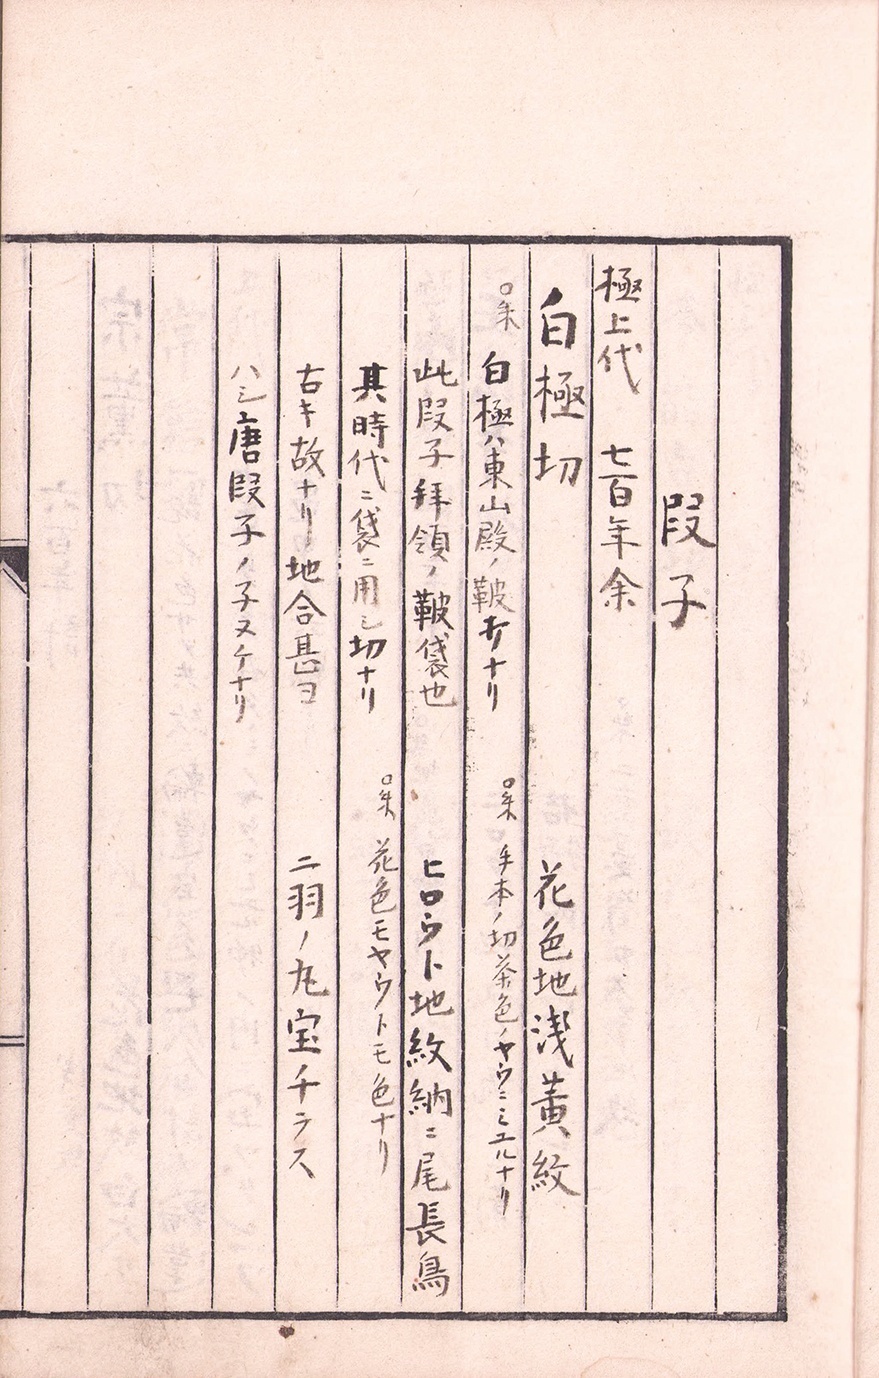 段子
極上代 七百年余
白極切 花色地浅黄紋
○朱 白極ハ東山殿ノ鞁オナリ ○朱 手本ノ切茶色ノヤウニミエルナリ
此段子拝領ノ鞁袋也 ヒロウト地紋納ニ尾長鳥
其時代ニ袋ニ用シ切ナリ ○朱 花色モヤウトモ色ナリ
古キ故ナリ地合甚ヨ 二羽ノ丸宝チラス
ハシ唐段子ノ子ヌケナリ